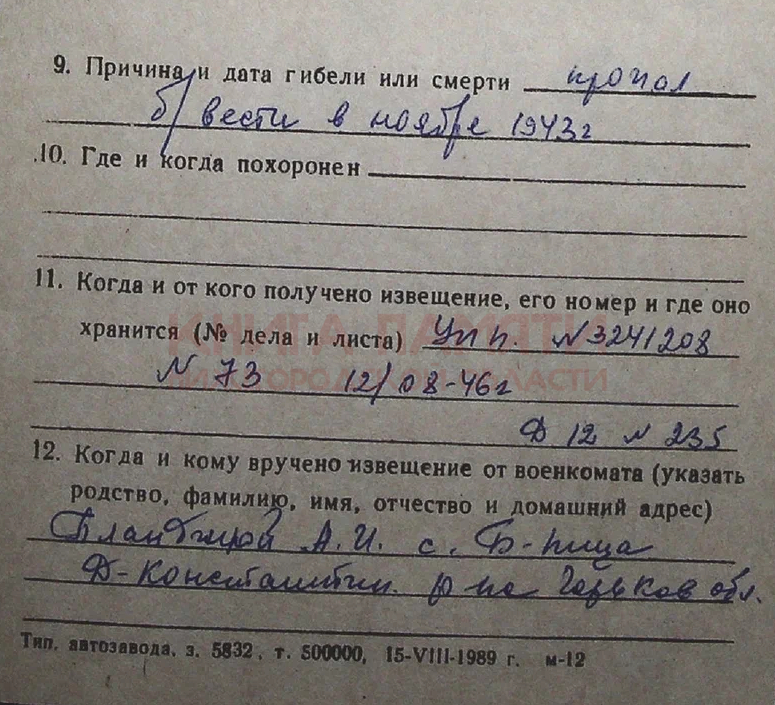 9. Причина и дата гибели или смерти пропал
б/вести в ноябре 1943г
10. Где и когда похоронен
11. Когда и от кого получено извещение, его номер и где оно
хранится (№ дела и листа) Упп. N3241208
КНИГА ПАМЯТИ
N 73 12/08-46г
НИЖЕГОРОДСКОЙ ОБЛАСТИ
Д 12 N 235
12. Когда и кому вручено извещение от военкомата (указать
родство, фамилию, имя, отчество и домашний адрес)
А.И. с. Б-пица
Д-Константин. р-на Горьков обл.
Тип. автозавода, з. 5832, т. 500000, 15-VIII-1989 г. м-12